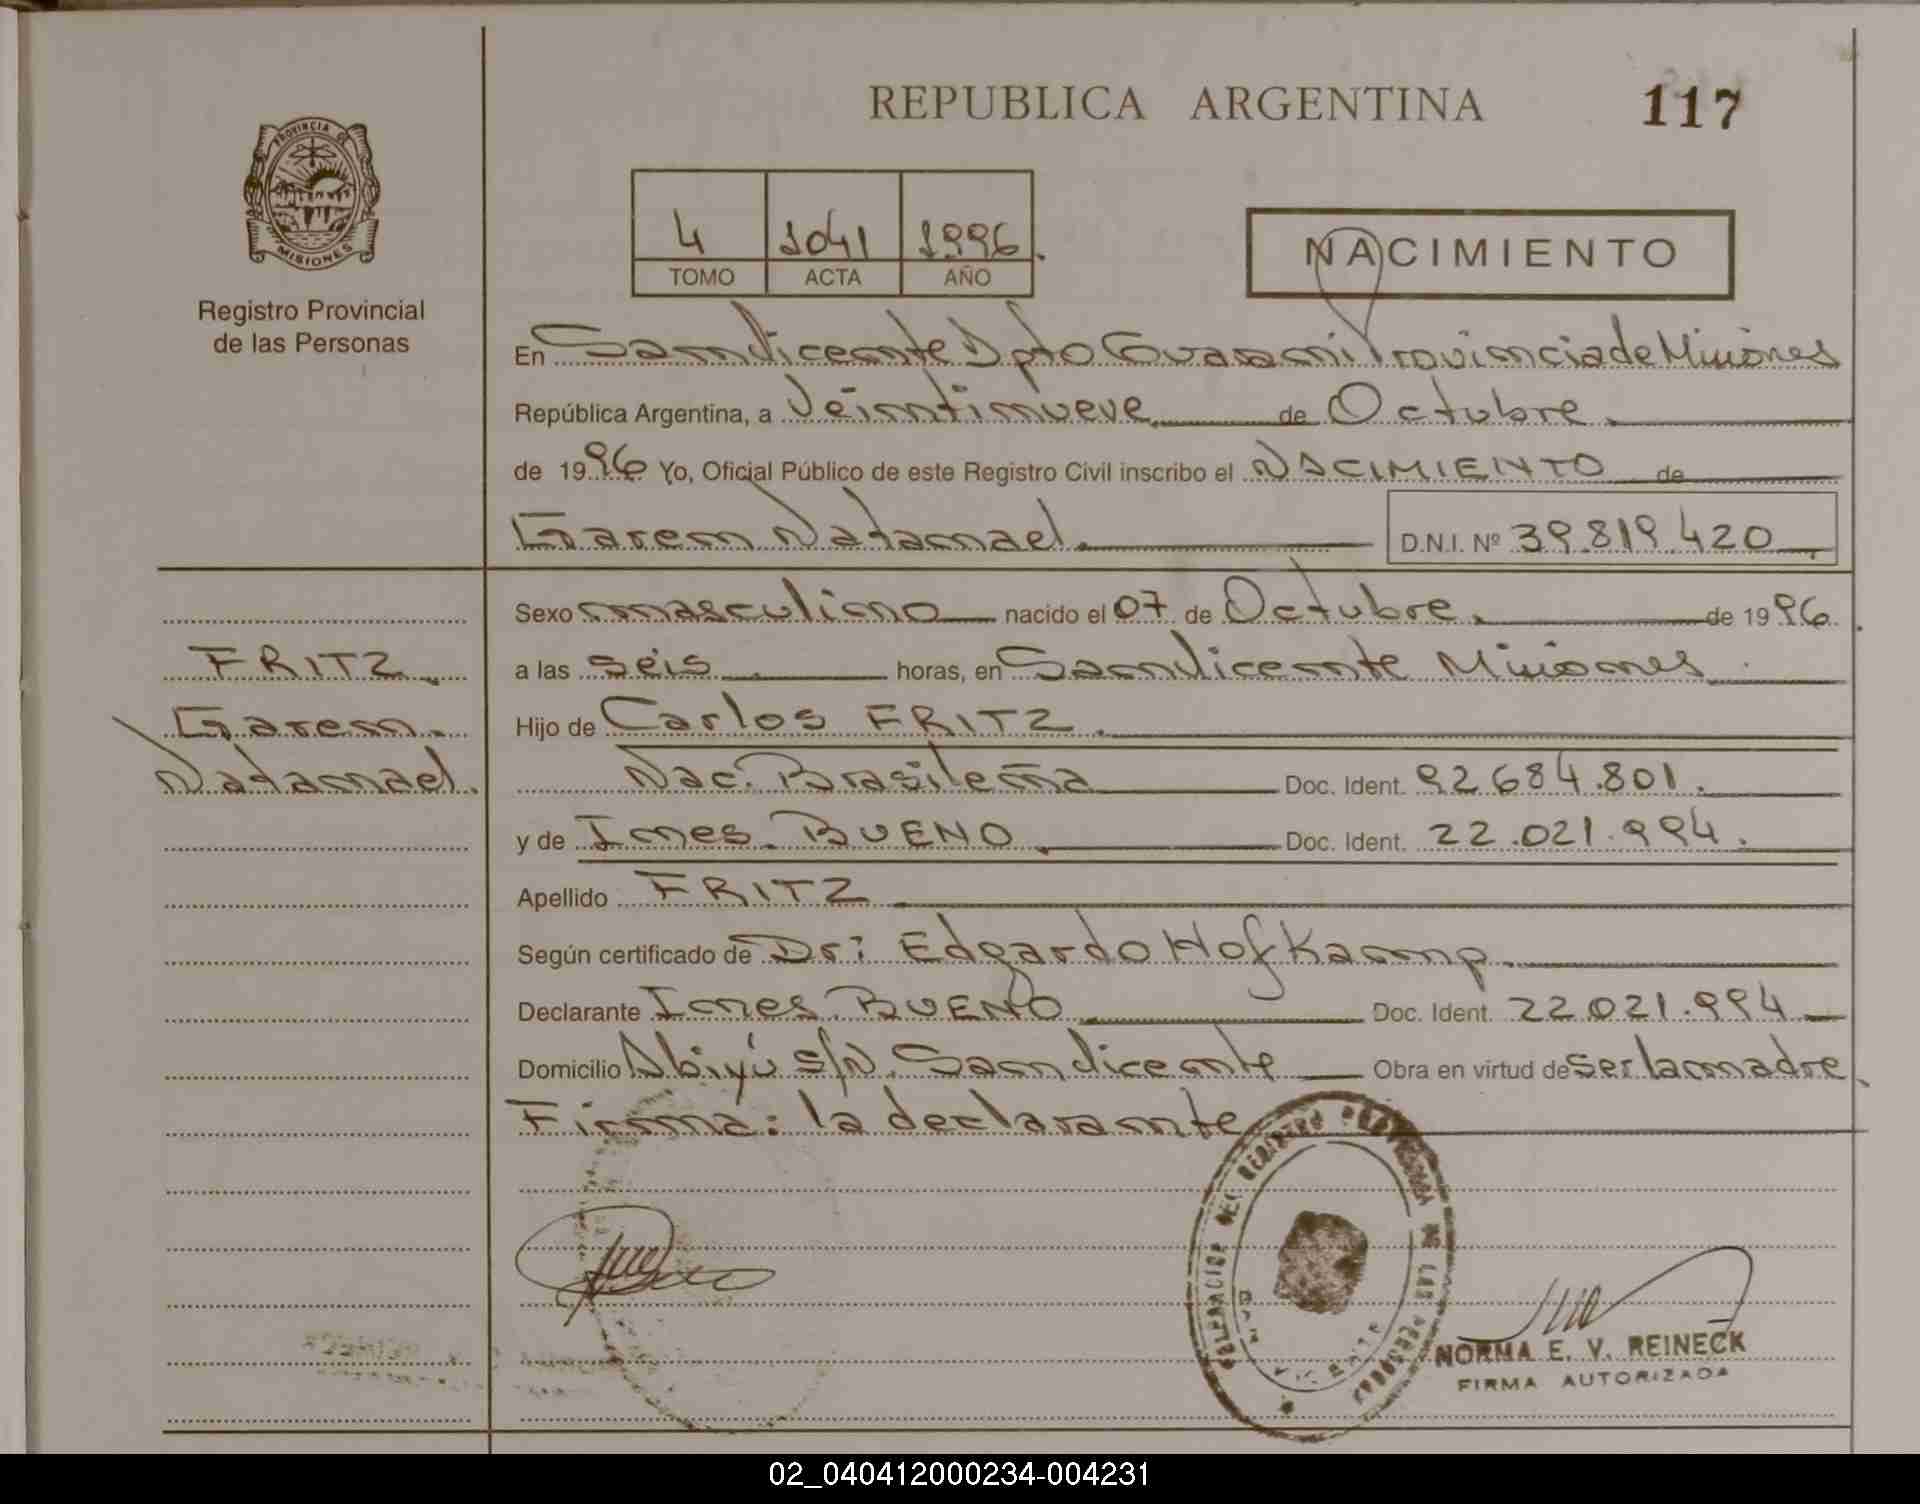 REPUBLICA ARGENTINA
117
PROVINCIA DE
MISIONES
Registro Provincial
de las Personas
4 1041 1996.
TOMO ACTA AÑO
NACIMIENTO
En San Vicente Dpto Guarani Provincia de Misiones
República Argentina, a Veintinueve de Octubre.
de 1996 Yo, Oficial Público de este Registro Civil inscribo el NACIMIENTO de
Garem Natanael. D.N.I. Nº 39.819.420
Sexo masculino nacido el 07 de Octubre. de 1996.
FRITZ.
a las seis horas, en San Vicente Misiones
Garem.
Hijo de Carlos FRITZ.
Natanael.
Nac. Brasileña Doc. Ident. 92684.801.
y de Ines. BUENO. Doc. Ident. 22.021.994.
Apellido FRITZ
Según certificado de Dr: Edgardo Hofkamp.
Declarante Ines. BUENO Doc. Ident. 22.021.994
Domicilio Abiyú s/N. San Vicente Obra en virtud de ser la madre.
Firma: la declarante
DELEGACION DEL REGISTRO PROVINCIAL DE LAS PERSONAS
SAN VICENTE
NORMA E. V. REINECK
FIRMA AUTORIZADA
02_040412000234-004231